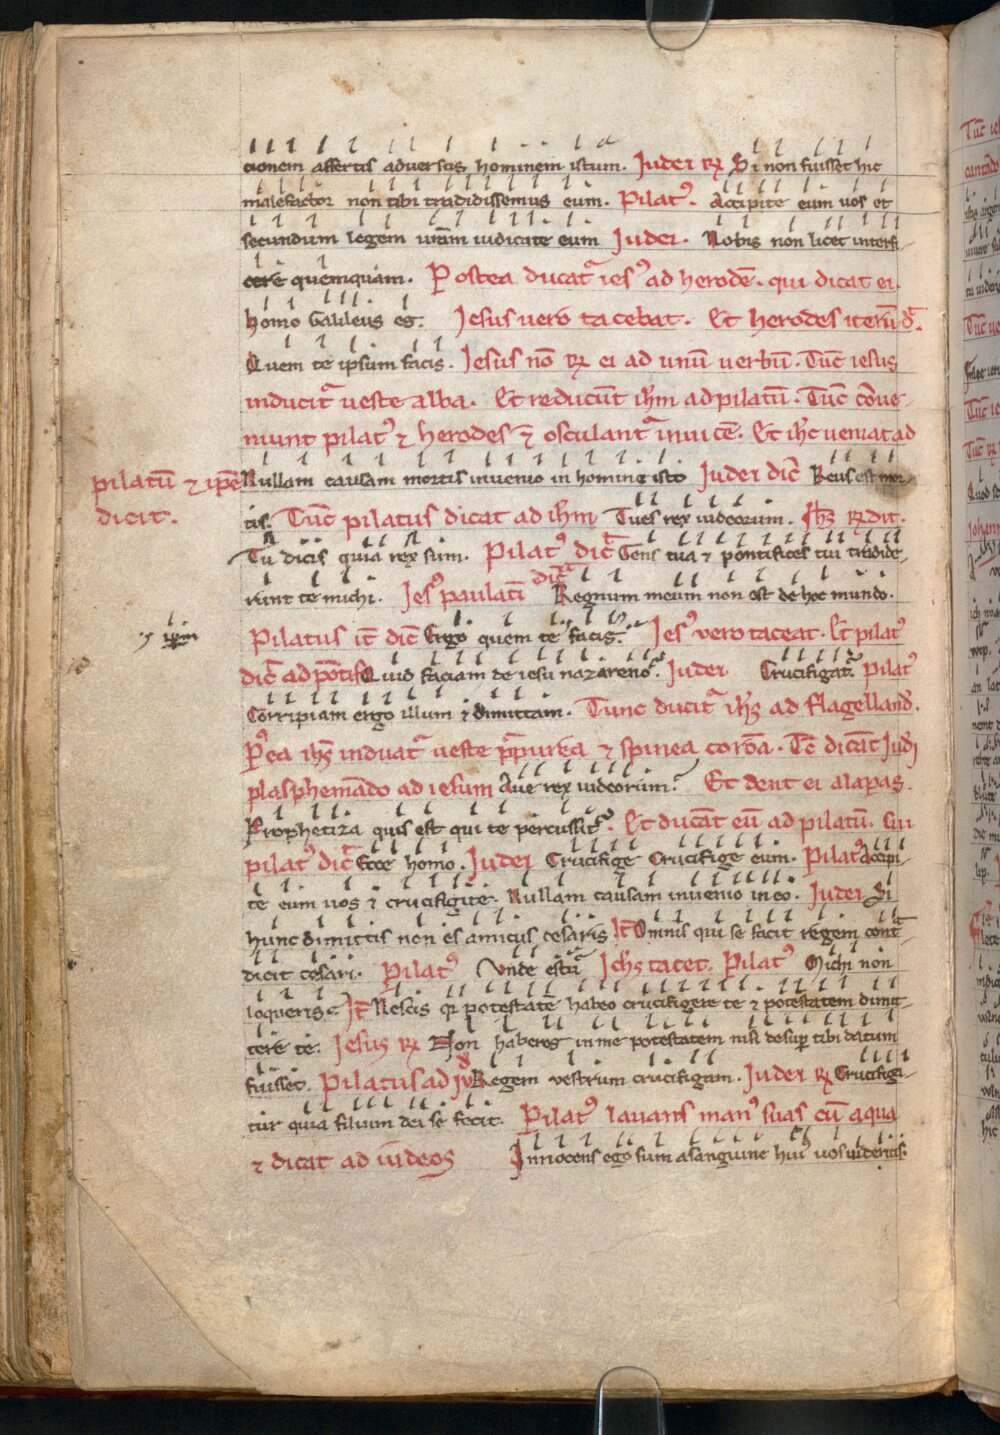 cionem affertis adversus hominem istum. Iudei R̃ Si non fuisset hic
malefactor non tibi tradidissemus eum. Pilatꝰ. Accipite eum uos et
secundum legem urãm iudicate eum Iudei. Nobis non licet interfi-
cere quemquam. Postea ducat᷑ iesꝰ ad herodẽ. qui dicat ei.
Homo Galileus es. Iesus uero tacebat. Et herodes iterũ d̃.
Quem te ipsum facis. Iesus nõ R̃ ei ad unũ uerbũ. Tũc iesus
inducit᷑ ueste alba. Et reducũt ihm̃ ad pilatũ. Tũc cõue-
niunt pilatꝰ ⁊ herodes ⁊ osculant᷑ inuicẽ. Et ihc̃ ueniat ad
pilatũ ⁊ ipẽ Nullam causam mortis inuenio in homine isto Iudei dic̃ Reus est mor-
dicit. tis. Tũc pilatus dicat ad ihm̃ Tu es rex iudeorum. Ihs̃ R̃dit.
Tu dicis quia rex sum. Pilatꝰ dic̃ Gens tua ⁊ pontifices tui tradide-
runt te michi. Iesꝰ paulatĩ dic̃ Regnum meum non est de hoc mundo.
Pilatus it̃ dic̃ Ergo quem te facis. Iesꝰ vero taceat. Et pilatꝰ
⁊ ipm̃
dic̃ ad põtif Quid faciam de iesu nazareno. Iudei Crucifigat᷑. Pilatꝰ
Corripiam ergo illum ⁊ dimittam. Tunc ducit᷑ ihs̃ ad flagelland̃.
P̃ea ihs̃ induat᷑ ueste p̃purea ⁊ spinea corõa. Tc̃ dicãt Iud̃i
plasphemãdo ad iesum Aue rex iudeorum. Et dent ei alapas.
Prophetiza quis est qui te percussit. Et ducãt eũ ad pilatũ. cui
pilatꝰ dic̃ Ecce homo. Iudei Crucifige Crucifige eum. Pilatꝰ Accipi-
te eum uos ⁊ crucifigite. Nullam causam inuenio in eo. Iudei Si
hunc dimittis non es amicus cesaris It̃ Omnis qui se facit regem cont᷑-
dicit cesari. Pilatꝰ Vnde es tu Ichs̃ tacet. Pilatꝰ Michi non
loqueris It̃ Nescis qꝛ potestatẽ habeo crucifigere te ⁊ potestatem dimit-
tere te. Iesus R̃ Non haberes in me potestatem nisi desuꝑ tibi datum
fuisset. Pilatus ad iud̃ Regem vestrum crucifigam. Iudei R̃ Crucifigi-
tur quia filium dei se fecit. Pilatꝰ lauans manꝰ suas cũ aqua
⁊ dicat ad iudeos Innocens ego sum a sanguine huiꝰ uos uideritis.